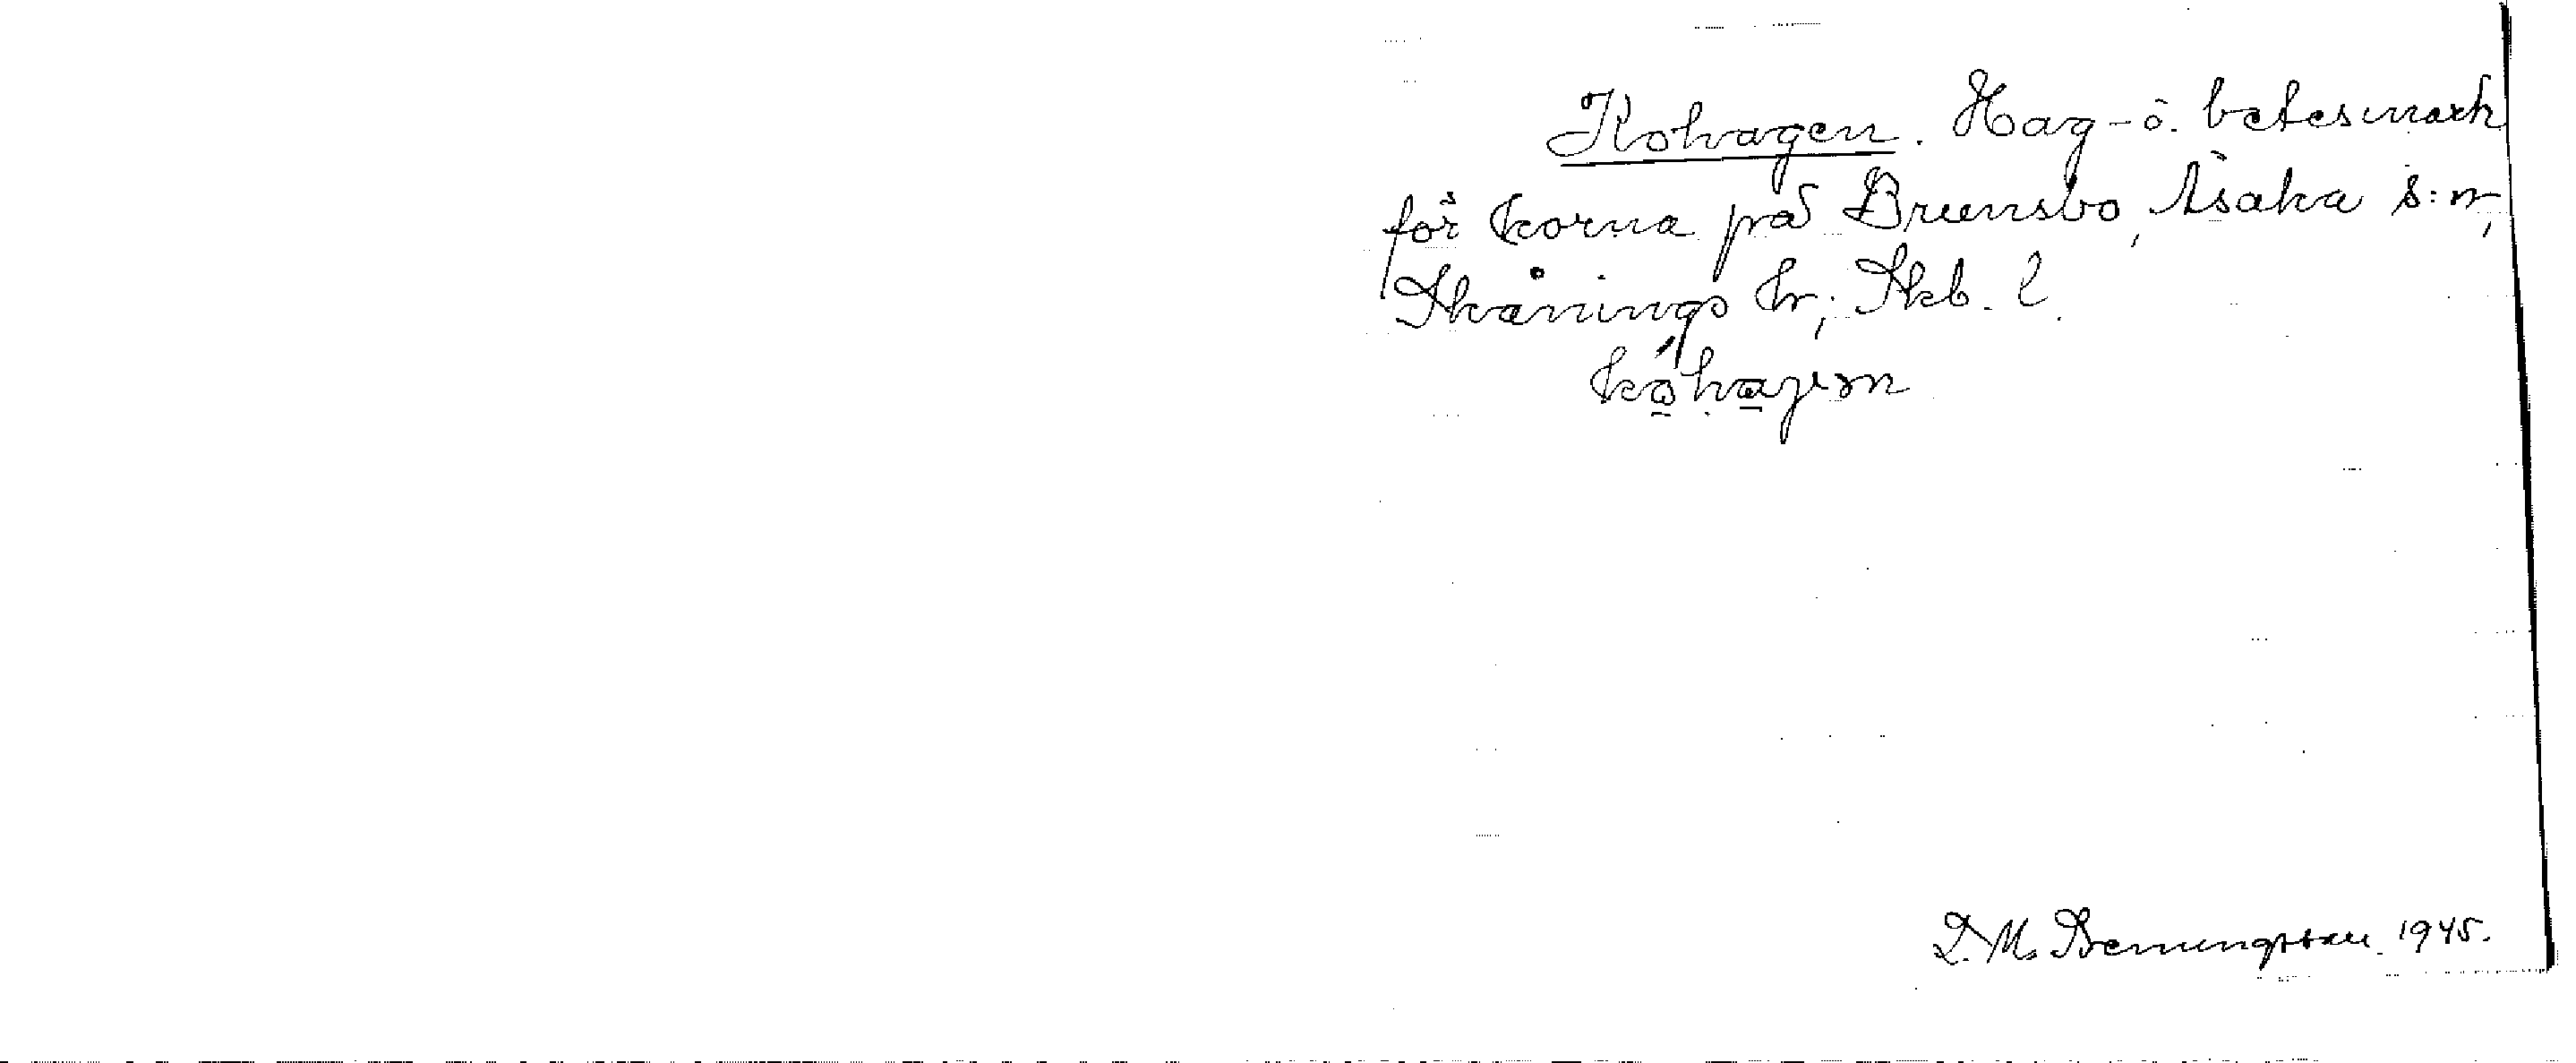 Kohagen. Hag- o. betesmark
för korna på Brunsbo, Åsaka s:n,
Skånings hr, Skb. l.
D. M. Bemungsson 1945.